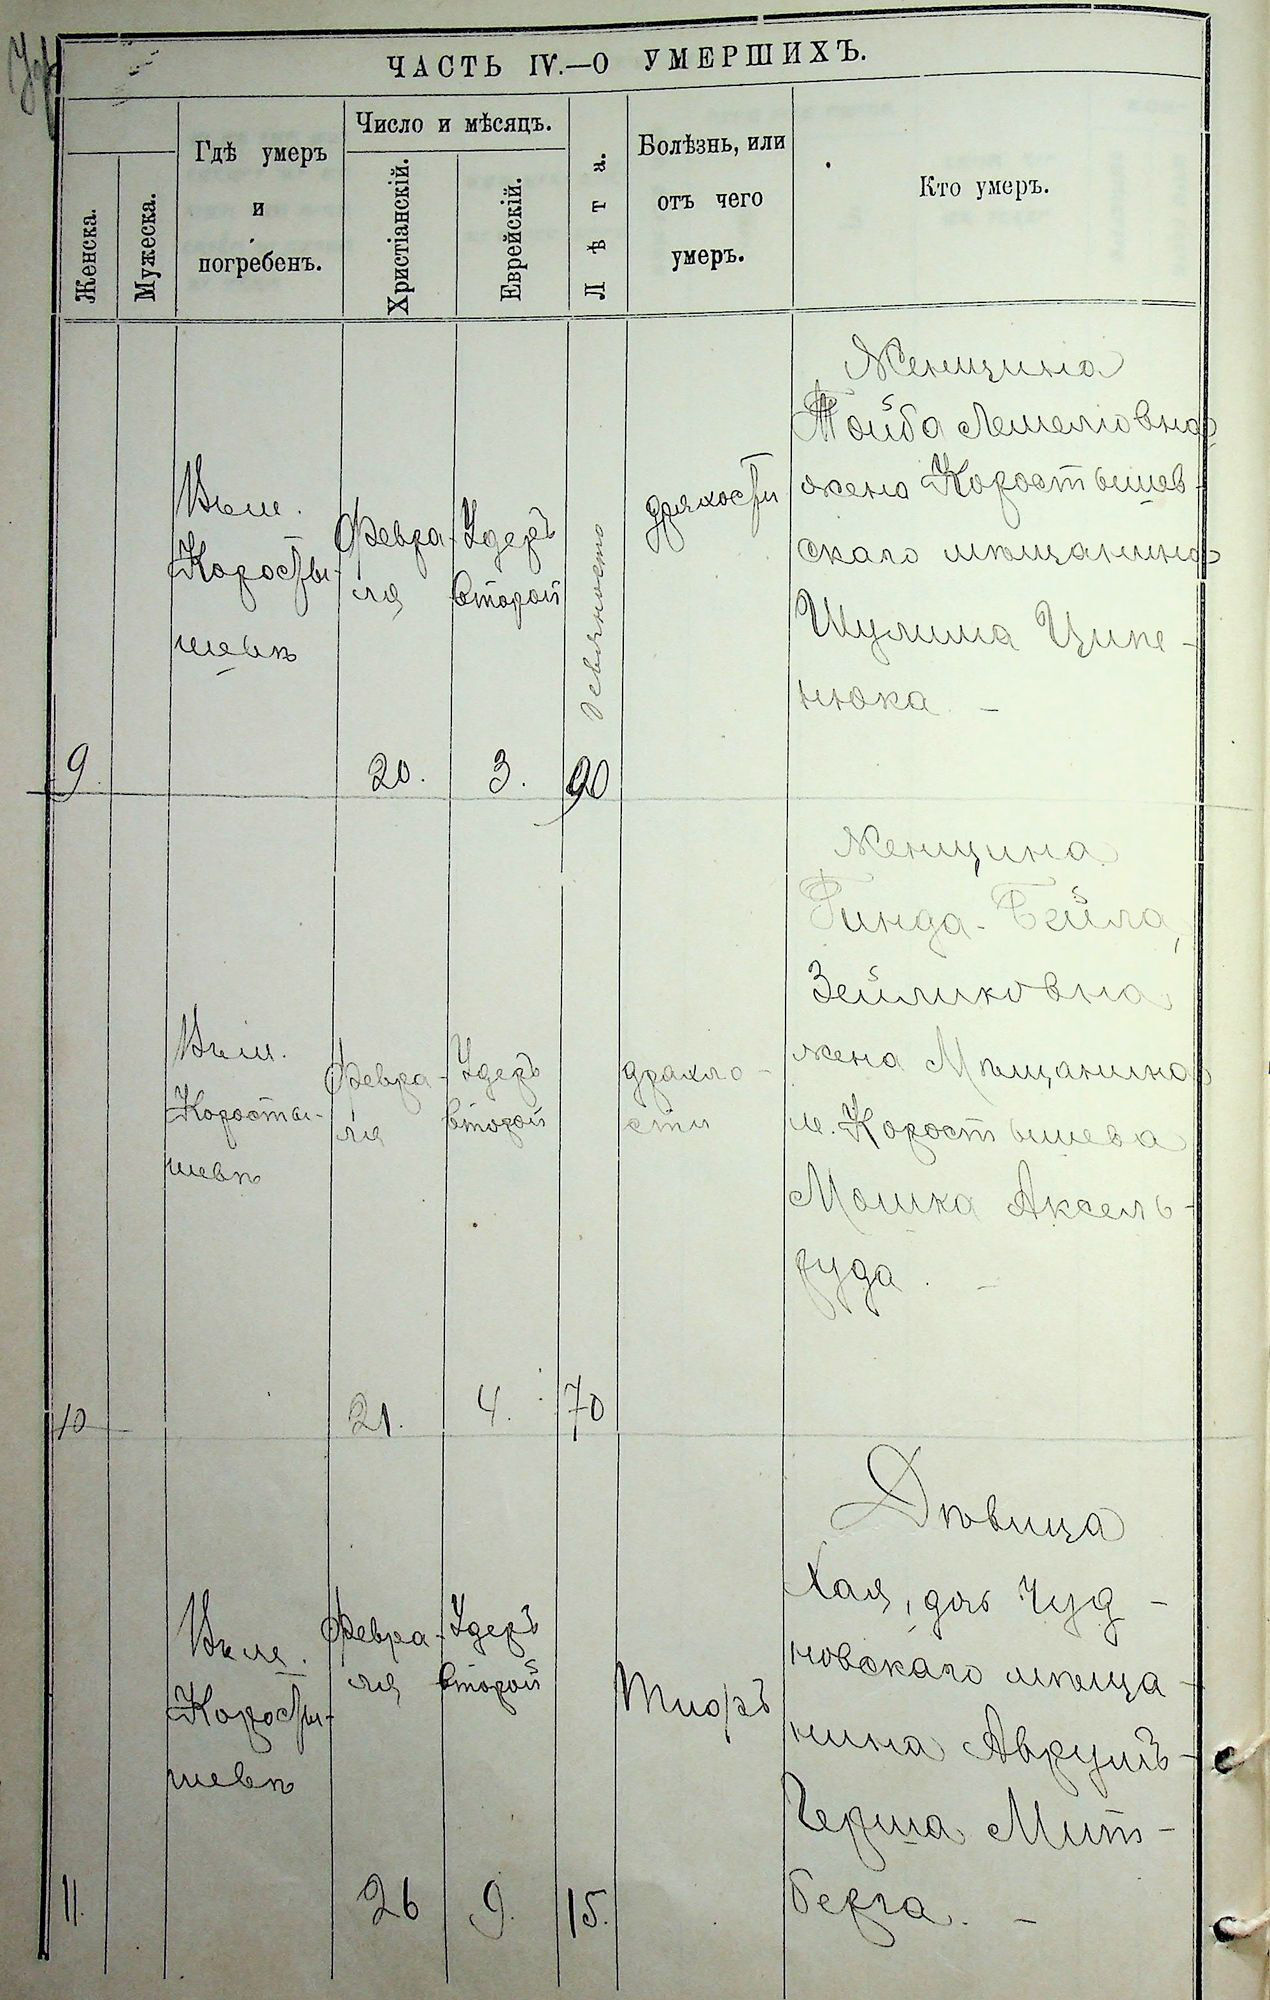 ЧАСТЬ IV.—О УМЕРШИХЪ.
Женска.
Мужеска.
Гдѣ умеръ
и
погребенъ.
Число и мѣсяцъ.
Христіанскій.
Еврейскій.
Лѣта.
Болѣзнь, или
отъ чего
умеръ.
Кто умеръ.
9
Въ м.
Коросты-
шевѣ
Февра-
ля
20.
Удеръ
второй
3.
девяносто
90
Женщина
Тойба Лемелiовна
жена Коростышев-
скаго мѣщанина
Шулима Ципе-
нюка. –
10
Въ м.
Коросты-
шевѣ
Февра-
ля
21.
Удеръ
второй
4.
70
драхло-
сти
Женщина
Гинда-Бейла,
Зейликовна
жена Мѣщанина
м. Коростышева
Мошка Аксель-
руда. –
11.
Въ м.
Коросты-
шевѣ
Февра-
ля
26
Удеръ
второй
9.
15.
Дѣвица
Хая, дчь Чуд-
новскаго мѣща-
нина Аврумъ-
Герша Мит-
берга. –